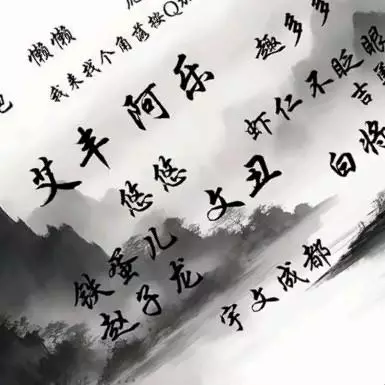 懒懒
我来找个角落按Q
趣多多
虾仁不眨眼
艾丰
阿乐
吉
白将
悠悠
文丑
铁蛋儿
赵子龙
宇文成都